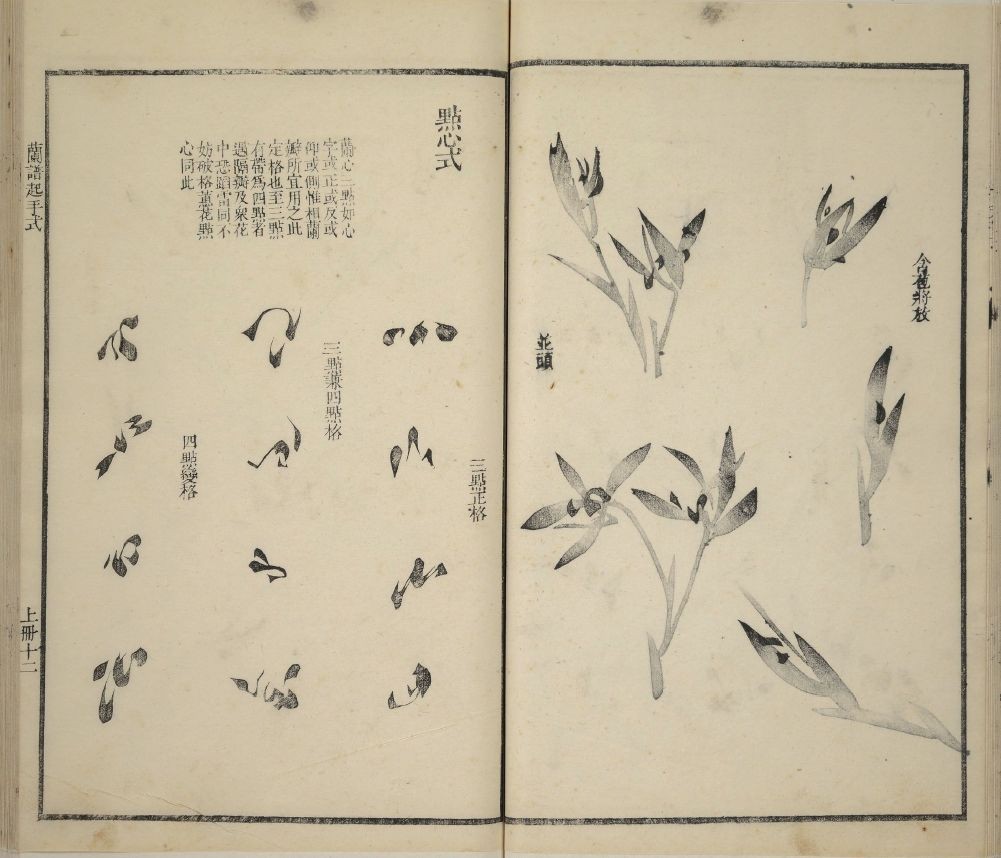 含苞將放
並頭
點心式
蘭心三點如心
字或正或反或
仰或側惟相蘭
瓣所宜用之此
定格也至三點
有帶為四點者
遇隔瓣及衆花
中恐蹈雷同不
妨破格蕙花點
心同此
三點正格
三點兼四點格
四點變格
蘭譜起手式
上冊十二